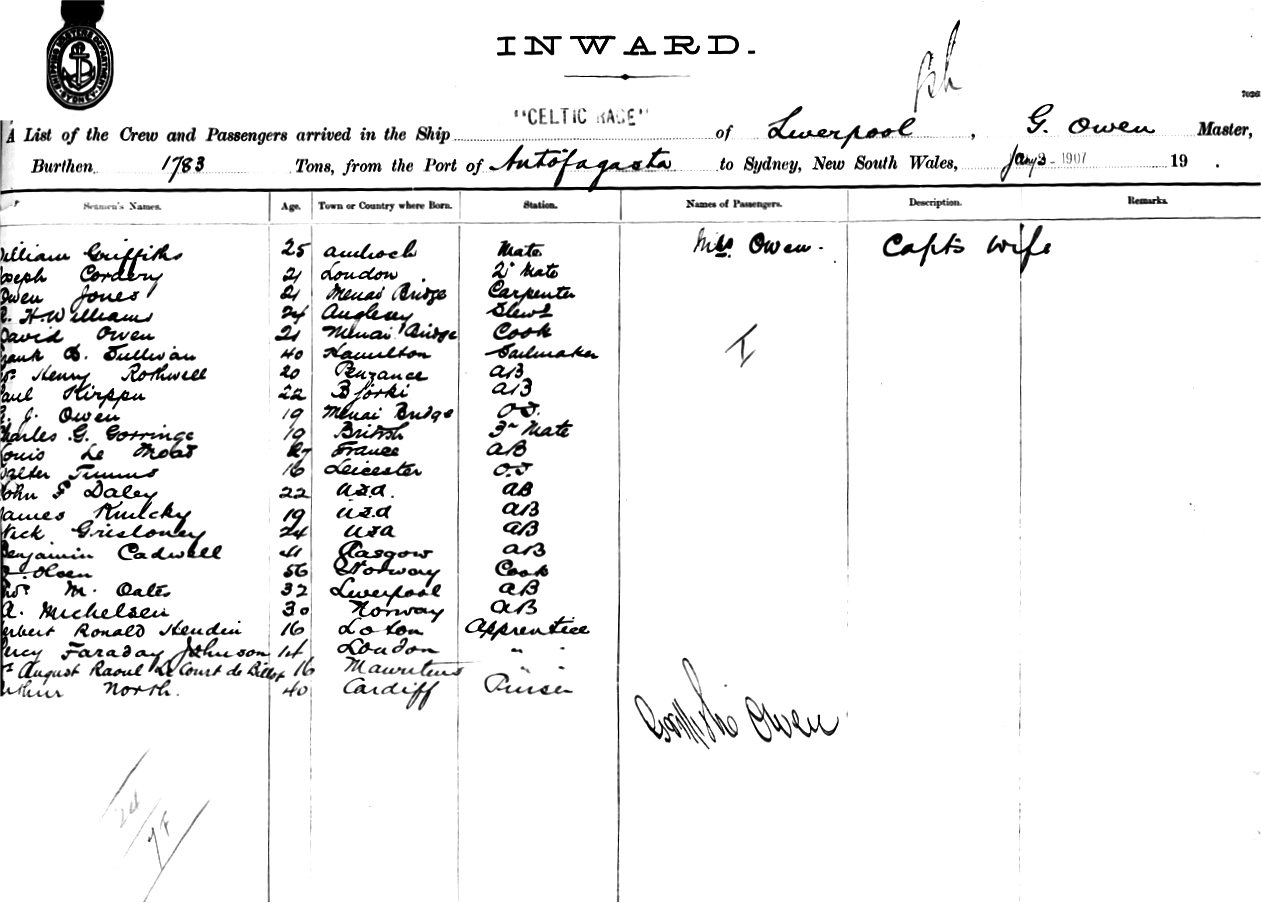 SHIPPING MASTERS DEPARTMENT SYDNEY
INWARD.
7026
A List of the Crew and Passengers arrived in the Ship "CELTIC RACE" of Liverpool, G. Owen Master,
Burthen 1783 Tons, from the Port of Antofagasta to Sydney, New South Wales, Jany 3 - 1907 19 .
Seamen's Names. Age. Town or Country where Born. Station. Names of Passengers. Description. Remarks.
illiam Griffiths 25 Amlwch Mate Mrs Owen. Capts wife
oseph Cordery 21 London 2d Mate
wen Jones 21 Menai Bridge Carpenter
H. Williams 24 Anglesey Stewd
avid Owen 21 Menai Bridge Cook
rank B. Sullivan 40 Hamilton Sailmaker
Henry Rothwell 20 Penzance AB
aul Hirppu 22 Bjorki AB
J. Owen 19 Menai Bridge OS.
harles G. Gorringe 19 British 3rd Mate
ouis Le Moal 27 France AB
alter Timms 16 Leicester O.S
ohn F Daley 22 U.S.A. AB
ames 19 U.S.A AB
ick 24 USA AB
enjamin Cadwell 41 Glasgow AB
Olsen 56 Norway Cook
M. Oates 32 Liverpool AB
A. Michelsen 30 Norway AB
erbert Ronald Hendin 16 Apprentice
ercy Faraday Johnson 14 London " "
August Raoul Le Court de Billot 16 Mauritius " "
rthur North. 40 Cardiff Purser
Owen